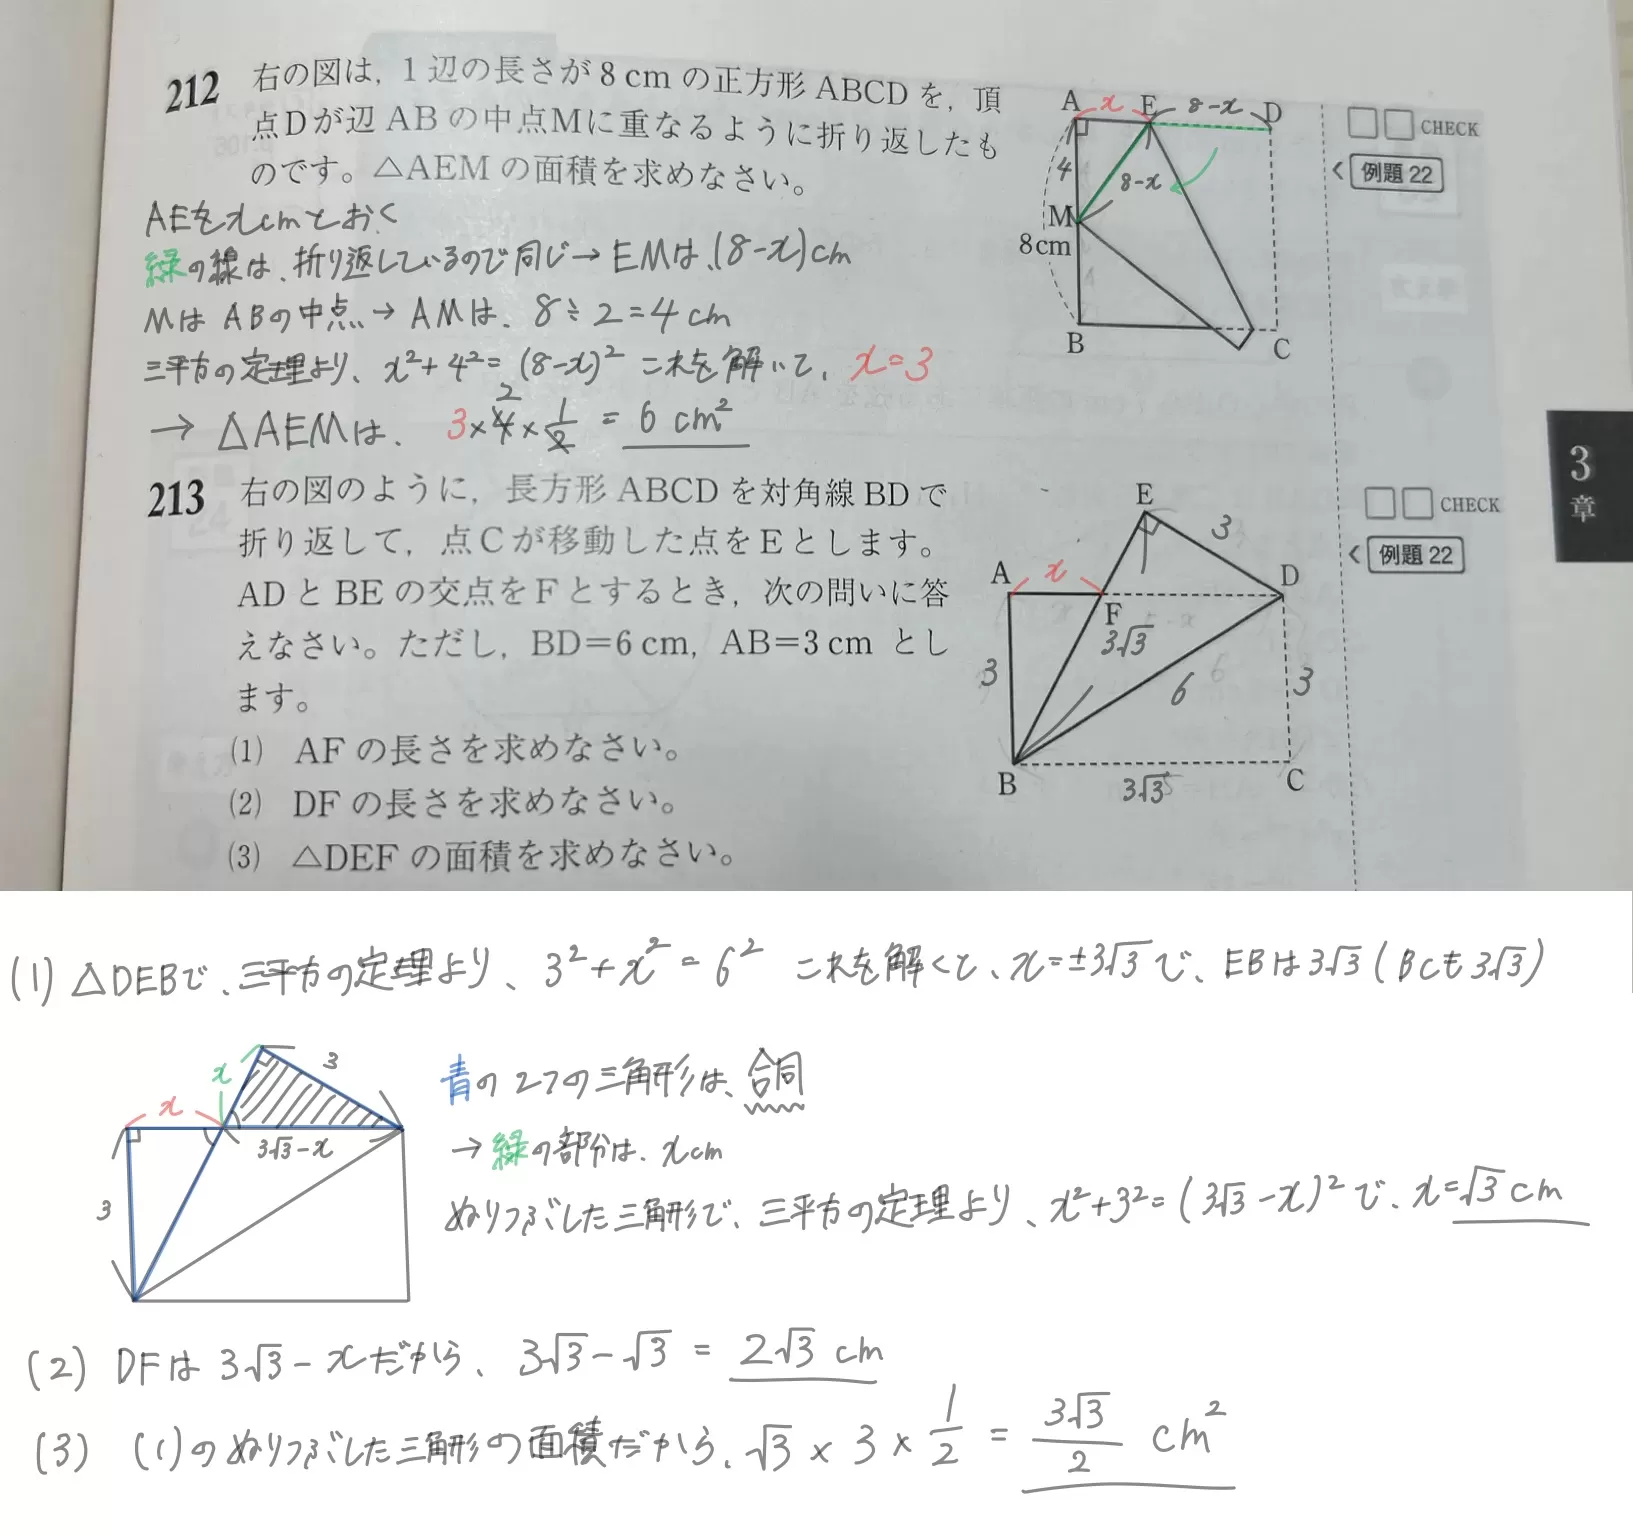 212 右の図は，1辺の長さが8cmの正方形ABCDを，頂
点Dが辺ABの中点Mに重なるように折り返したも
のです。△AEMの面積を求めなさい。
AEをxcmとおく
緑の線は、折り返しているので同じ→EMは、(8-x)cm
MはABの中点→AMは、8÷2=4cm
三平方の定理より、x²+4²=(8-x)² これを解いて、x=3
→△AEMは、3×4×1/2=6cm²
2
A x E 8-x D
4
8-x
M
8cm
B C
CHECK
例題22
3
章
213 右の図のように，長方形ABCDを対角線BDで
折り返して，点Cが移動した点をEとします。
ADとBEの交点をFとするとき，次の問いに答
えなさい。ただし，BD=6cm，AB=3cmとし
ます。
(1) AFの長さを求めなさい。
(2) DFの長さを求めなさい。
(3) △DEFの面積を求めなさい。
E
3
A x D
F
3√3
3 6 3
B C
3√3
CHECK
例題22
(1) △DEBで、三平方の定理より、3²+x²=6² これを解くと、x=±3√3で、EBは3√3(BCも3√3)
x 3
x
3√3-x
3
青の2つの三角形は、合同
→緑の部分は、xcm
ぬりつぶした三角形で、三平方の定理より、x²+3²=(3√3-x)²で、x=√3cm
(2) DFは3√3-xだから、3√3-√3=2√3cm
(3) (1)のぬりつぶした三角形の面積だから、√3×3×1/2=3√3/2 cm²